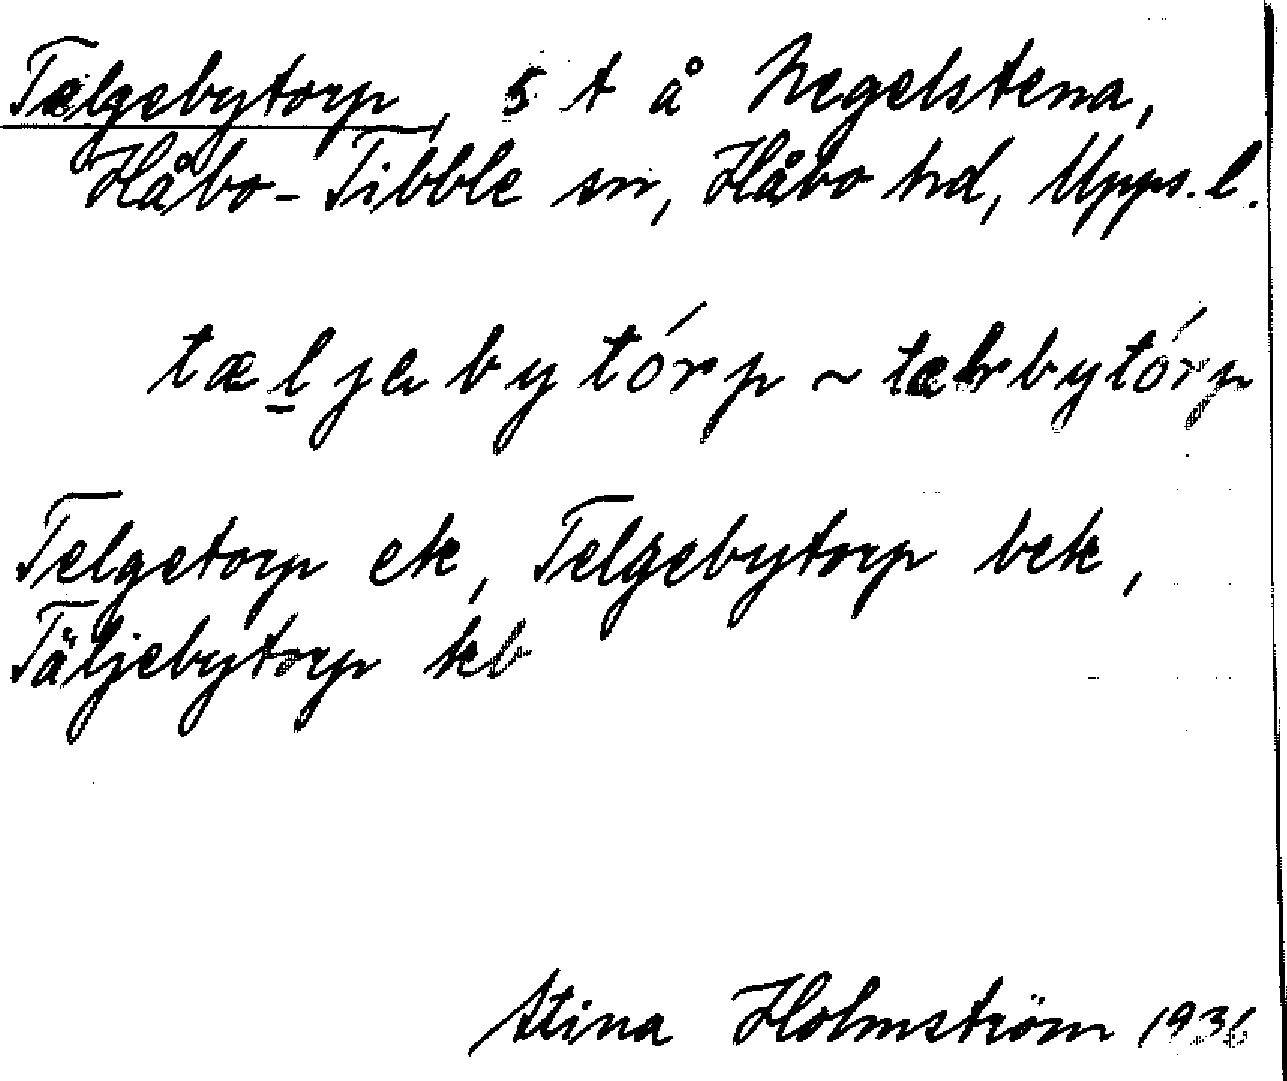 Tælgebytorp, 5 t å Negelstena,
Håbo-Tibble sn, Håbo hd, Upps. l.
tæljebytórp ~ tælrbytórp
Telgetorp ek, Telgebytorp bek,
Täljebytorp kb
Stina Holmström 1936